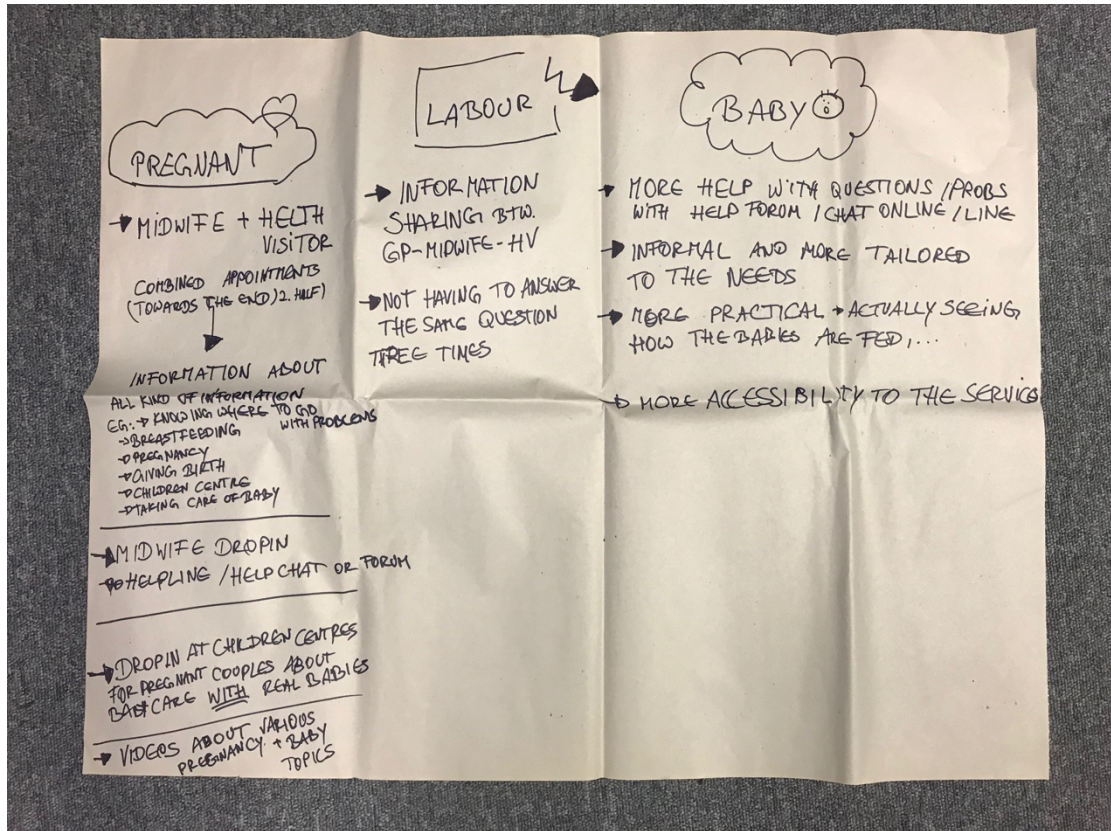 PREGNANT
→ MIDWIFE + HELTH
VISITOR
COMBINED APPOINTMENTS
(TOWARDS THE END) 2. HALF)
INFORMATION ABOUT
ALL KIND OF INFORMATION
EG.: → KNOWING WHERE TO GO
WITH PROBLEMS
→ BREASTFEEDING
→ PREGNANCY
→ GIVING BIRTH
→ CHILDREN CENTRE
→ TAKING CARE OF BABY
→ MIDWIFE DROPIN
→ HELPLINE / HELP CHAT OR FORUM
→ DROPIN AT CHILDREN CENTRES
FOR PREGNANT COUPLES ABOUT
BABYCARE WITH REAL BABIES
→ VIDEOS ABOUT VARIOUS
PREGNANCY + BABY
TOPICS
LABOUR
→ INFORMATION
SHARING BTW.
GP-MIDWIFE-HV
→ NOT HAVING TO ANSWER
THE SAME QUESTION
THREE TIMES
BABY
→ MORE HELP WITH QUESTIONS / PROBS
WITH HELP FORUM / CHAT ONLINE / LINE
→ INFORMAL AND MORE TAILORED
TO THE NEEDS
→ MORE PRACTICAL → ACTUALLY SEEING
HOW THE BABIES ARE FED,...
→ MORE ACCESSIBILITY TO THE SERVICE